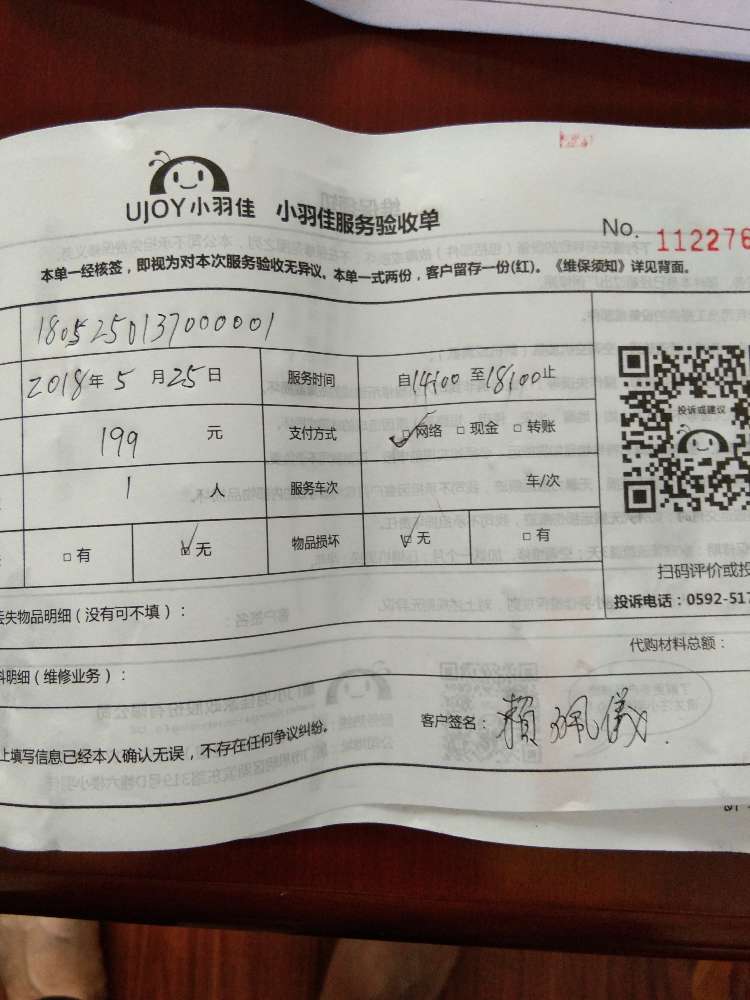 UJOY小羽佳 小羽佳服务验收单
No. 112276
本单一经核签，即视为对本次服务验收无异议。本单一式两份，客户留存一份(红)。《维保须知》详见背面。
1805250137000001
2018年5月25日 服务时间 自14:00至18:00止
199 元 支付方式 ☑网络 □现金 □转账
1 人 服务车次 车/次
□有 ☑无 物品损坏 ☑无 □有
投诉或建议
扫码评价或投
投诉电话：0592-517
失物品明细（没有可不填）：
代购材料总额：
料明细（维修业务）：
客户签名：賴珮儀
上填写信息已经本人确认无误，不存在任何争议纠纷。